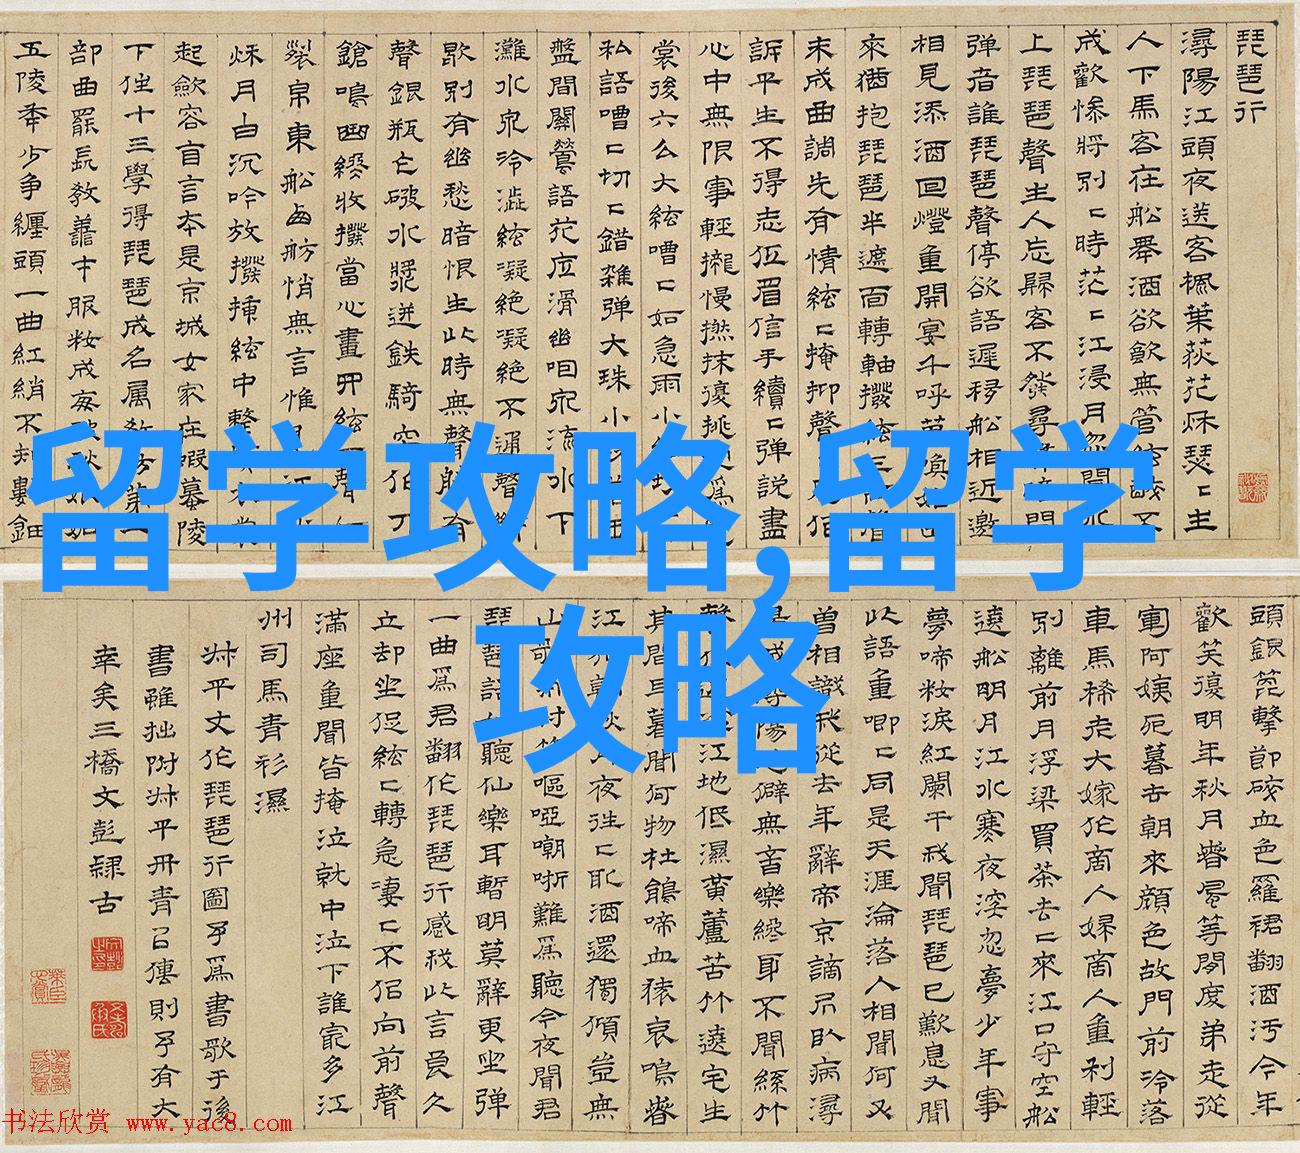 琵琶行
潯陽江頭夜送客楓葉荻花秋瑟〻主
人下馬客在船舉酒欲飲無管絃醉不
成歡慘將別〻時茫〻江浸月忽聞水
上琵琶聲主人忘歸客不發尋聲暗問
彈者誰琵琶聲停欲語遲移船相近邀
相見添酒回燈重開宴千呼萬喚始出
來猶抱琵琶半遮面轉軸撥絃三兩聲
未成曲調先有情絃〻掩抑聲〻思似
訴平生不得志低眉信手續〻彈說盡
心中無限事輕攏慢撚抹復挑 爲
裳後六么大絃嘈〻如急雨小絃
私語嘈〻切〻錯雜彈大珠小珠 玉
盤間關鶯語花底滑幽咽泉流水下
灘水泉冷澀絃凝絕凝絕不通聲
歇別有幽愁暗恨生此時無聲 有
聲銀瓶乍破水漿迸鉄騎突 刀
鎗鳴曲終收撥當心畫四絃一聲
裂帛東船西舫悄無言惟見江
秌月白沉吟放撥插絃中整 裳
起歛容自言本是京城女家在蝦蟇陵
下住十三學得琵琶成名属教坊第一
部曲罷長教善才服粧成每 秋娘妬
五陵年少争纏頭一曲紅綃不知數鈿
頭銀篦擊節碎血色羅裙翻酒汚今年
歡笑復明年秋月春風等閒度弟走從
軍阿姨死暮去朝來顔色故門前冷落
車馬稀老大嫁作商人婦商人重利輕
別離前月浮梁買茶去〻來江口守空船
遶船明月江水寒夜深忽夢少年事
夢啼粧淚紅闌干我聞琵琶已歎息又聞
此語重唧〻同是天涯淪落人相聞何必
曾相識我從去年辭帝京謫居臥病潯
陽 潯陽地僻無音樂終歲不聞絲竹
聲 江地低濕黄蘆苦竹遶宅生
其間旦暮聞何物杜鵑啼血猿哀鳴春
江 朝秋月夜往〻取酒還獨傾豈無
山歌 村笛嘔啞嘲哳難爲聽今夜聞君
琵琶語 聽仙樂耳暫明莫辭更坐彈
一曲爲君翻作琵琶行感我此言良久
立却坐促絃〻轉急凄〻不似向前聲
滿座重聞皆掩泣就中泣下誰最多江
州司馬青衫濕
叔平丈作琵琶行圖予爲書歌于後
書雖拙附叔平丹青以傳則予有大
幸矣三橋文彭隸古
留学攻略,留学
攻略
书法欣赏 www.yac8.com